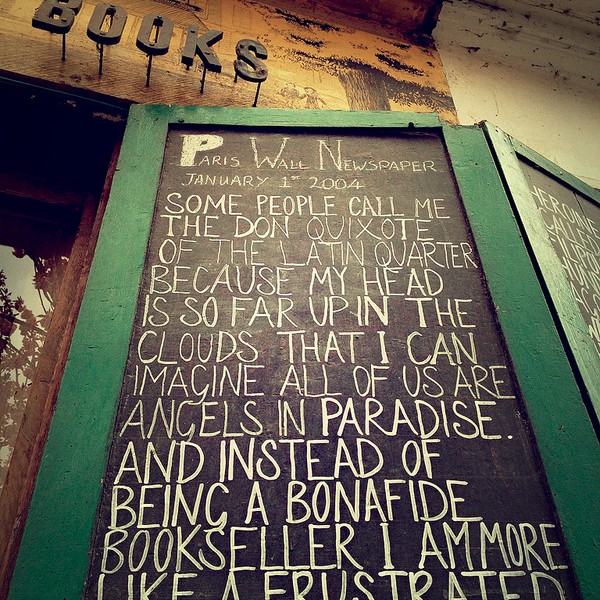 BOOKS
PARIS WALL NEWSPAPER
JANUARY 1ST 2004
SOME PEOPLE CALL ME
THE DON QUIXOTE
OF THE LATIN QUARTER
BECAUSE MY HEAD
IS SO FAR UP IN THE
CLOUDS THAT I CAN
IMAGINE ALL OF US ARE
ANGELS IN PARADISE.
AND INSTEAD OF
BEING A BONAFIDE
BOOKSELLER I AM MORE
LIKE A FRUSTRATED